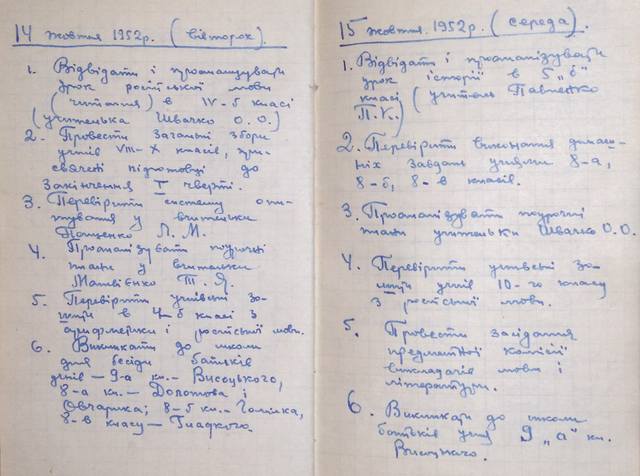 14 жовтня 1952 р. (вівторок).
1. Відвідати і проаналізувати
урок російської мови
(читання) в IV-б класі
(учителька Швачко О.О.)
2. Провести загальні збори
учнів VIII-X класів, при-
свячені підготовці до
закінчення I чверті.
3. Перевірити систему опи-
тування у вчительки
Пащенко Л. М.
4. Проаналізувати поурочні
плани у вчительки
Матвієнко Т. Я.
5. Перевірити учнівські зо-
шити в 4-б класі з
арифметики і російської мови.
6. Викликати до школи
для бесіди батьків
учнів — 9-а кл. — Висоцького,
8-а кл. — Долотова і
Овчарика; 8-б кл. —
8-в класу — Гладкого.
15 жовтня 1952 р. (середа).
1. Відвідати і проаналізувати
урок історії в 5 „б"
класі (учитель Павленко
П.К.)
2. Перевірити виконання домаш-
ніх завдань учнями 8-а,
8-б, 8-в класів.
3. Проаналізувати поурочні
плани учительки Швачко О.О.
4. Перевірити учнівські зо-
шити учнів 10-го класу
з російської мови.
5. Провести засідання
предметної комісії
викладачів мови і
літератури.
6. Викликати до школи
батьків учня 9 „а" кл.
Висоцького.